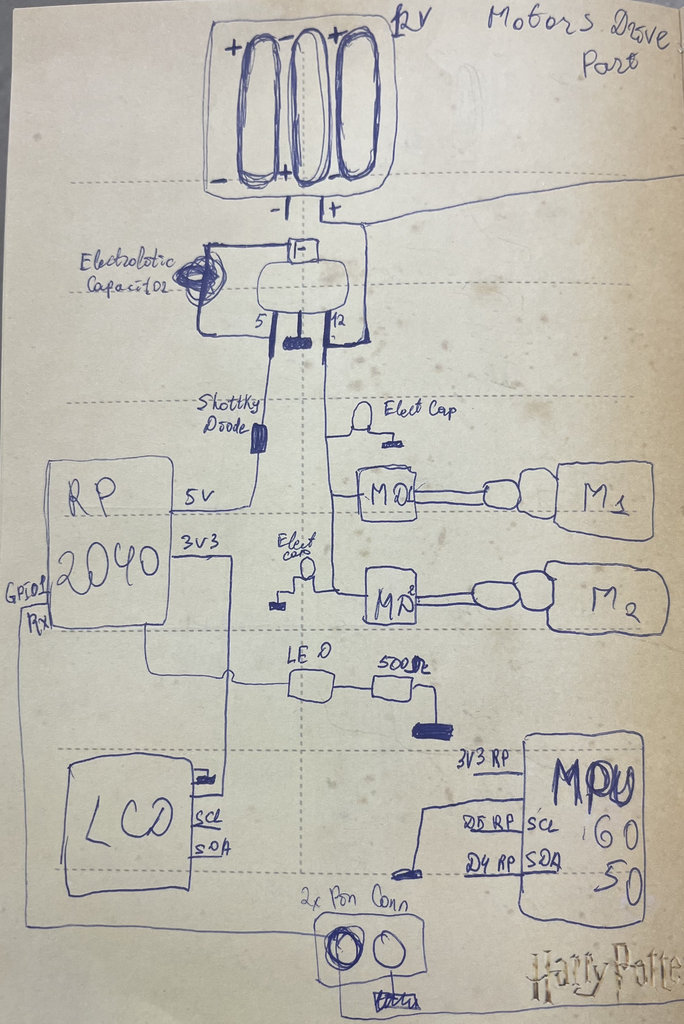 12V
Motors Drive
Part
+ - +
- + -
- +
Electrolotic
Capacitor
5 12
Shottky
Diode
Elect Cap
RP
2040
5V
3V3
GPIO1
Rx
MD1
M1
Elect
cap
MD2
M2
LED
500Ω
LCD
SCL
SDA
3V3 RP
D5 RP SCL
D4 RP SDA
MPU
60
50
2x Pin Conn
Harry Potte